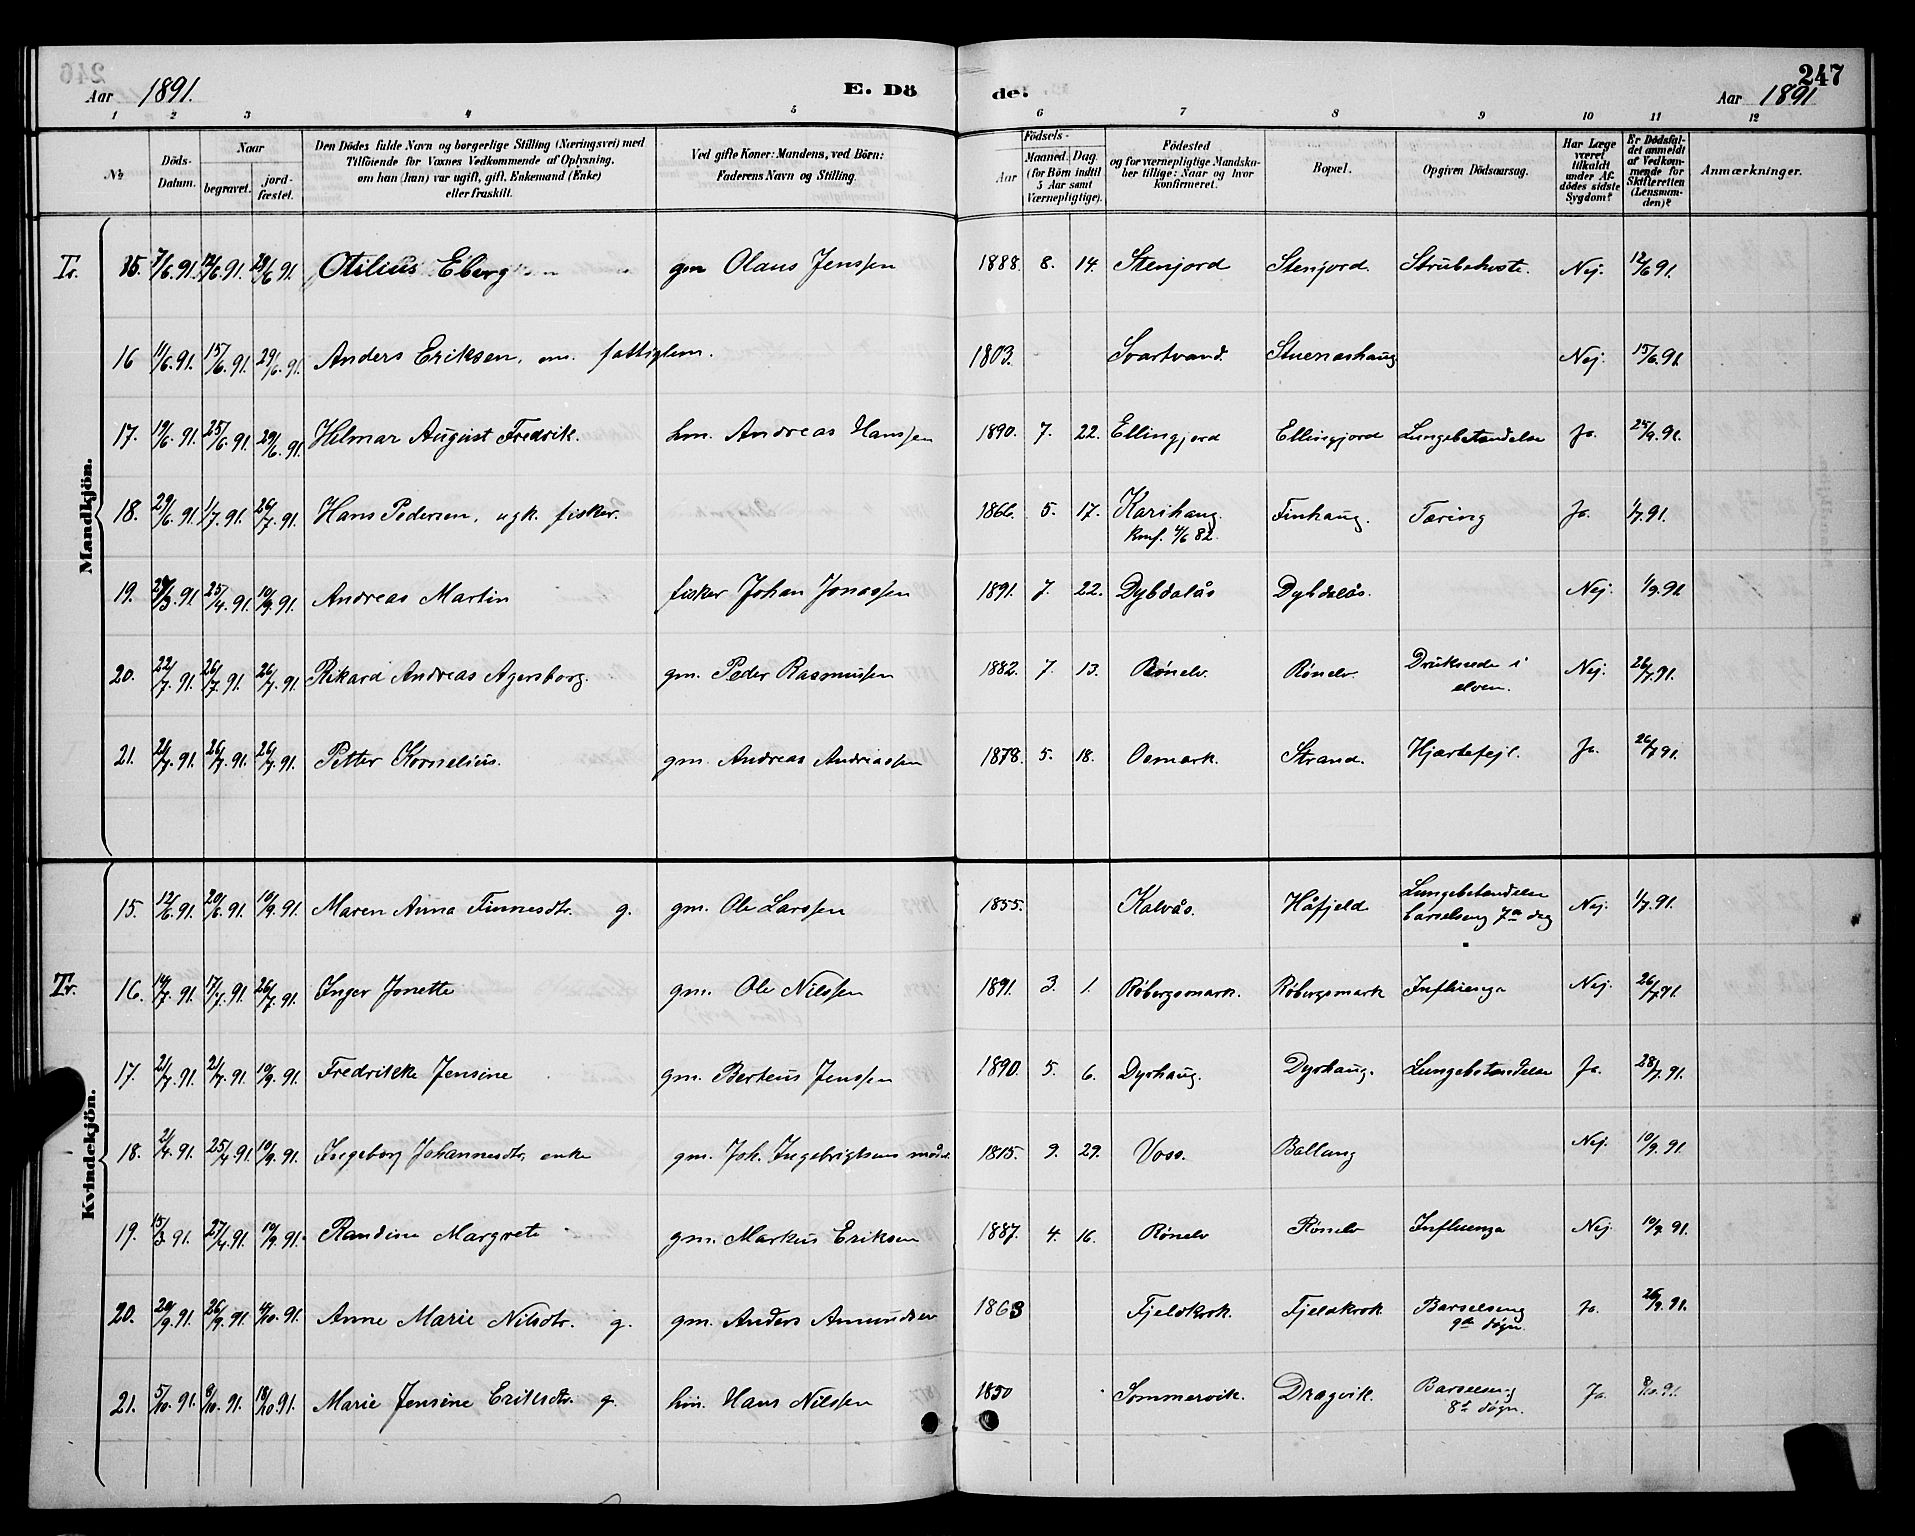 246
Aar 1891.
E. Döde.
247
Aar 1891
1 2 3 4 5 6 7 8 9 10 11 12
No
Döds-Datum.
Naar
begravet.
jord-fæstet.
Den Dödes fulde Navn og borgerlige Stilling (Næringsvei) med
Tilföiende for Voxnes Vedkommende af Oplysning,
om han (hun) var ugift, gift, Enkemand (Enke)
eller fraskilt.
Ved gifte Koner: Mandens, ved Börn:
Faderens Navn og Stilling.
Födsels-
Aar
Maaned. Dag.
(for Börn indtil
5 Aar samt
Værnepligtige).
Födested
og for værnepligtige Mandska-
ber tillige: Naar og hvor
konfirmeret.
Bopæl.
Opgiven Dödsaarsag.
Har Læge
været
tilkaldt
under Af-
dödes sidste
Sygdom?
Er Dödsfal-
det anmeldt
af Vedkom-
mende for
Skifteretten
(Lensman-
den)?
Anmærkninger.
Mandkjön.
Tr. 15. 7/6.91. 12/6.91. 29/6 91. Otilius Eberg gm Olaus Jenssen 1888. 8. 14. Stenjord Stenjord. Strubehoste. Nej. 12/6 91.
16 11/6.91. 15/6.91. 29/6.91. Anders Eriksen, em. fattiglem. 1803. Svartvand. Stuenashaug Nej. 15/6.91.
17. 19/6.91. 25/6.91. 29/6.91. Hilmar August Fredrik. hm. Andreas Hanssen 1890. 7. 22. Ellingjord Ellingjord Lungebetændelse Ja. 25/9.91.
18. 29/6.91. 1/7.91. 26/7.91. Hans Pedersen, ugk. fisker. 1866. 5. 17. Karihaug.
Konf. 4/6 82. Finhaug. Tæring Ja. 1/7.91.
19. 29/3.91. 25/4.91. 10/9.91. Andreas Martin fisker Johan Jonassen 1891. 7. 22. Dybdalås Dybdalås. Nej. 1/9.91.
20. 22/7.91. 26/7.91. 26/7.91. Rikard Andreas Agersborg. gm. Peder Rasmussen 1882. 7. 13. Rönelv. Rönelv. Druknede i
elven. Nej. 26/7.91.
21. 21/7.91. 26/7.91. 26/7.91. Petter Kornelius. gm. Andreas Andriassen 1878. 5. 18. Osmark. Strand. Hjærtefejl. Ja. 26/7 91.
Kvindekjön.
15. 12/6.91. 20/6.91. 10/9.91. Maren Anna Finnesdtr. g. gm. Ole Larssen 1855. Kalvås. Håfjeld Lungebetændelse
barselseng 7de dag Nej. 1/7.91.
Tr. 16. 14/7.91. 17/7.91. 26/7.91. Inger Jonette gm. Ole Nilssen 1891. 3. 1. Röbergsmark. Röbergsmark Influenza Nej. 26/7.91.
17. 21/7.91. 21/7.91. 10/9.91. Fredrikke Jensine gm. Berteus Jenssen 1890. 5. 6. Dyrhaug. Dyrhaug. Lungebetændelse Ja. 28/7.91.
18. 2/4.91. 25/4.91. 10/9.91. Ingeborg Johannesdtr, enke gm. Joh. Ingebrigtsens moder 1815. 9. 29. Voss. Ballang Nej. 10/9.91.
19. 15/3.91. 27/4.91. 10/9.91. Randine Margrete gm. Markus Eriksen 1887. 4. 16. Rönelv Rönelv Influenza Nej. 10/9.91.
20. 20/9.91. 26/9.91. 4/10.91. Anne Marie Nilsdtr. g. gm. Anders Amundsen 1863 Fjeldkrok. Fjeldkrok Barselseng
9de dögn. Ja. 26/9.91.
21. 5/10.91. 8/10.91. 18/10.91. Marie Jensine Eriksdtr. g. hm. Hans Nilssen 1850 Sommervik. Dragvik. Barselseng
8de dögn. Ja. 8/10.91.